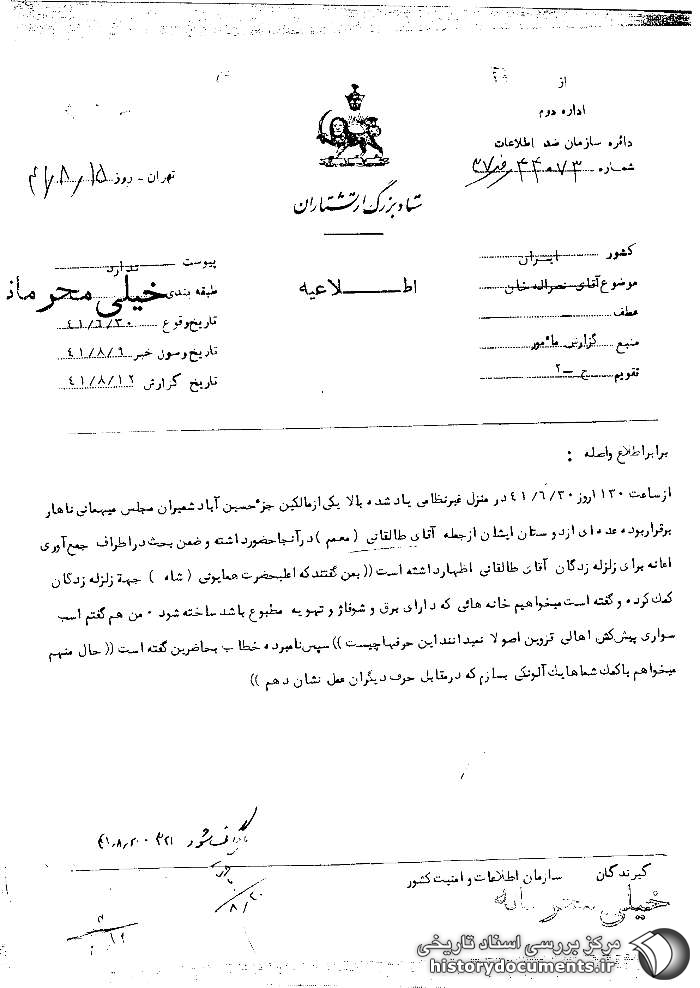 از
اداره دوم
دائره سازمان ضد اطلاعات
شماره ۴۴۰۷۳
تهران - روز ۴۱/۸/۱۵
ستاد بزرگ ارتشتاران
کشور ایران
موضوع آقای نصراله خان
عطف
منبع گزارش مأمور
تقویم ج - ۲
اطلاعیه
پیوست ندارد
طبقه بندی خیلی محرمانه
تاریخ وقوع ۴۱/۶/۳۰
تاریخ وصول خبر ۴۱/۸/۹
تاریخ گزارش ۴۱/۸/۱۲
برابر اطلاع واصله :
از ساعت ۱۱۳۰ روز ۴۱/۶/۳۰ در منزل غیرنظامی یاد شده بالا یکی از مالکین جزء حسین آباد شمیران مجلس میهمانی ناهار
برقرار بوده عده ای از دوستان ایشان از جمله آقای طالقانی (معمم) در آنجا حضور داشته و ضمن بحث در اطراف جمع آوری
اعانه برای زلزله زدگان آقای طالقانی اظهار داشته است ((بمن گفتند که اعلیحضرت همایونی (شاه) جهة زلزله زدگان
کمک کرده و گفته است میخواهیم خانه هائی که دارای برق و شوفاژ و تهویه مطبوع باشد ساخته شود ۰ من هم گفتم اسب
سواری پیش کش اهالی قزوین اصولا نمیدانند این حرفها چیست)) سپس نامبرده خطاب بحاضرین گفته است ((حال منهم
میخواهم با کمک شماها یک آلونکی بسازم که در مقابل حرف دیگران عمل نشان دهم))
۳۲۱ ۴۱/۸/۲۰
گیرندگان سازمان اطلاعات و امنیت کشور
خیلی محرمانه
۸/۲۰
مرکز بررسی اسناد تاریخی
historydocuments.ir